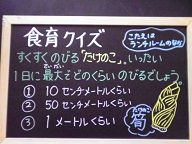 食育クイズ
こたえは
ランチルームのなか
すくすくのびる「たけのこ」、いったい
1日に最大でどのくらいのびるでしょう
さいだい
① 10 センチメートルくらい
② 50 センチメートルくらい
③ 1 メートルくらい
たけのこ
筍